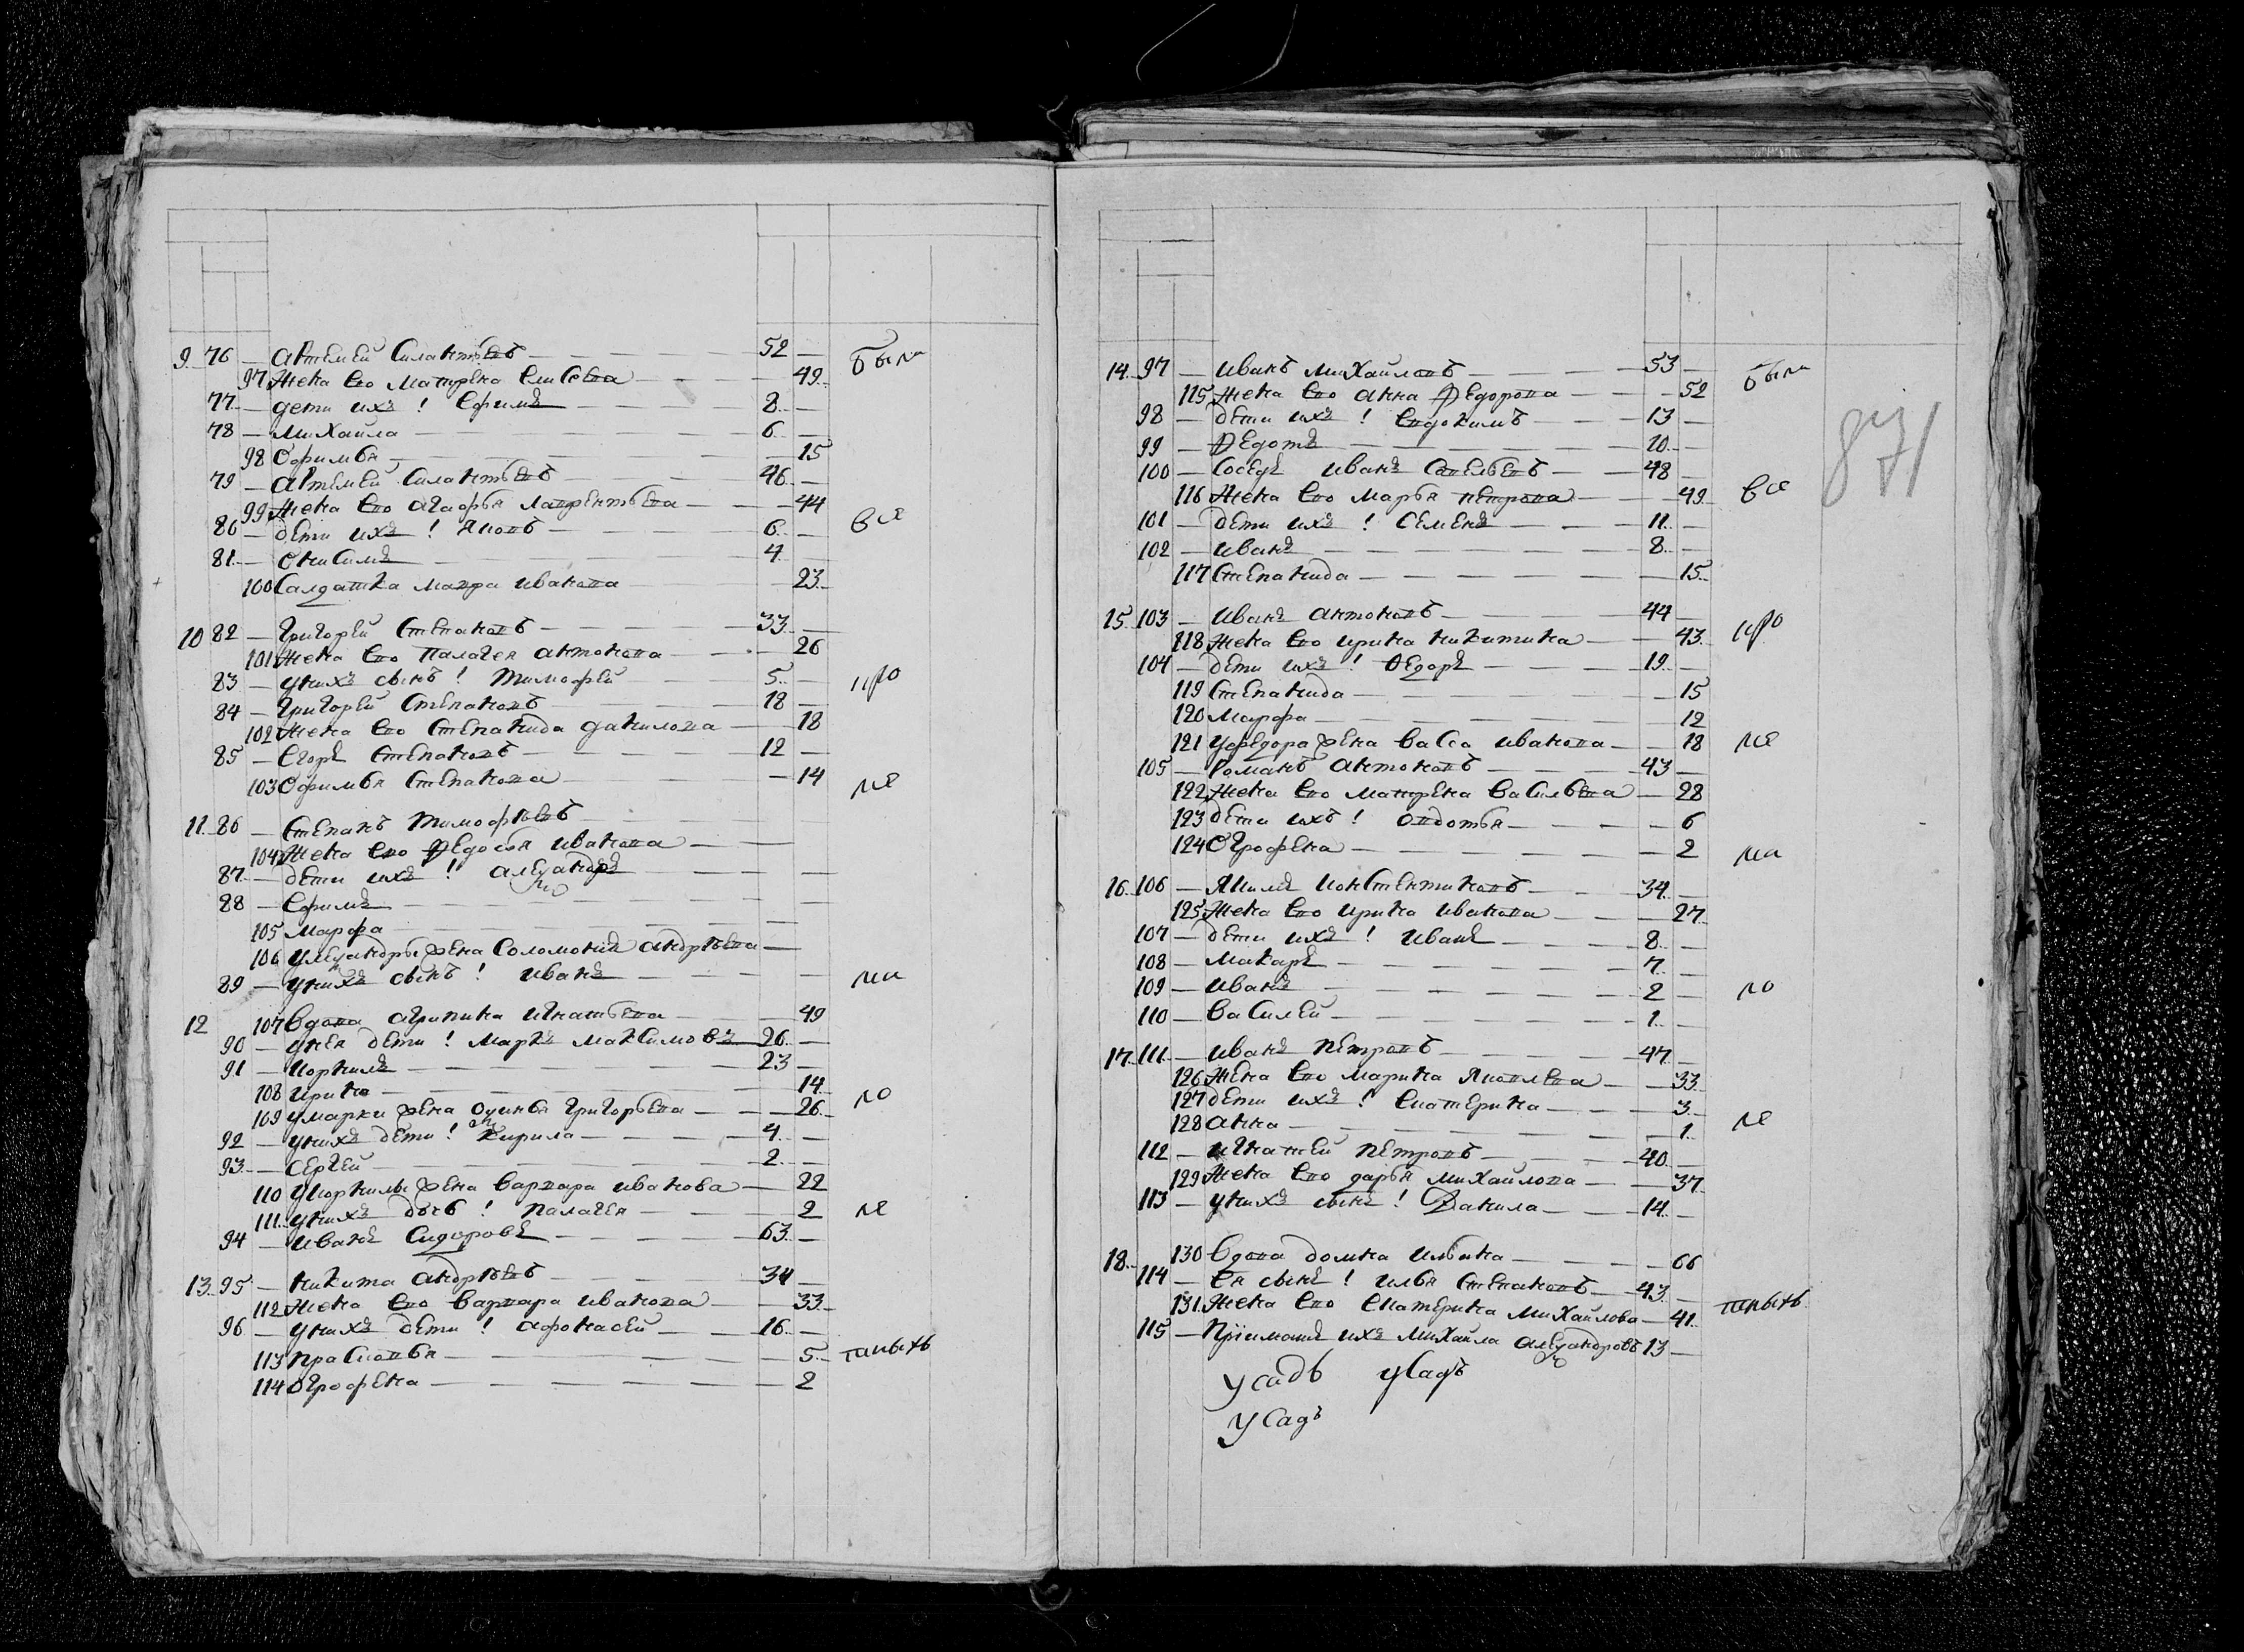 9. 76 — Артемей Силантьевъ — 52 — были
97 Жена Ево Матрена Елисева — 49
77 — дети ихъ! Ефимъ — 8 —
78 — Михайла — 6 —
98 Офимья — 15
79 — Артемей Силантьевъ — 46 —
99 Жена Ево Агафья Лаврентьева — 44
80 — дети ихъ! Яковъ — 6 — все
81 — Онисимъ — 4 —
100 Салдатка Мавра Иванова — 23
10 82 — Григорей Степановъ — 33 —
101 Жена Ево Палагея Антонова — 26
83 — уних сынъ! Тимофей — 5 —
84 — Григорей Степановъ — 18 —
102 Жена Ево Степанида Данилова — 18
85 — Егоръ Степановъ — 12 —
103 Офимья Степанова — 14
11 86 — Степанъ Тимофѣевъ —
104 Жена Ево Федосья Иванова —
87 — дети ихъ! Алеxандръ —
88 — Ефимъ —
105 Марфа —
106 Уалеxандры жена Соломония Андрѣева —
89 — унихъ сынъ! Иванъ —
12 107 Вдова Агрипина Игнатьева — 49
90 — унея дети! Маркъ Максимовъ 26 —
91 — Корнилъ — 23 —
108 Ирина — 14
109 умарки жена Офимья Григорьева — 26
92 — унихъ дети! Кирила — 4 —
93 — Сергей — 2 —
110 Укорнилы жена Варвара Иванова — 22
111 унихъ дочь! Палагея — 2
94 — Иванъ Сидоровъ — 63 —
13 95 — Никита Андрѣевъ — 34 —
112 Жена Ево Варвара Иванова — 33
96 — унихъ дети! Афонасей — 16 —
113 Прасковья — 5
114 Огрофена — 2
871
14 97 — Иванъ Михайловъ — 53 — были
115 Жена Ево Анна Федорова — 52
98 — дети ихъ! Евдокимъ — 13 —
99 — Федотъ — 10 —
100 — Соседъ Иванъ Савельевъ — 48 —
116 Жена Ево Марья Петрова — 49 все
101 — дети ихъ! Семенъ — 11 —
102 — Иванъ — 8 —
117 Степанида — 15
15 103 — Иванъ Антоновъ — 44 —
118 Жена Ево Ирина Никитина — 43
104 — дети ихъ! Федоръ — 19 —
119 Степанида — 15
120 Марфа — 12
121 Уфедора жена Васса Иванова — 18
105 — Романъ Антоновъ — 43 —
122 Жена Ево Матрена Васильева — 28
123 дети ихъ! Овдотья — 6
124 Огрофена — 2
16 106 — Якимъ Констентиновъ — 34 —
125 Жена Ево Ирина Иванова — 27
107 — дети ихъ! Иванъ — 8 —
108 — Макаръ — 7 —
109 — Иванъ — 2 —
110 — Василей — 1 —
17 111 — Иванъ Петровъ — 47 —
126 Жена Ево Марина Яковлева — 33
127 дети ихъ! Екатерина — 3
128 Анна — 1
112 — Игнатей Петровъ — 40 —
129 Жена Ево Дарья Михайлова — 37
113 — унихъ сынъ! Данила — 14 —
18 130 Вдова Домна Ильина — 66
114 — Ея сынъ! Илья Степановъ — 43 —
131 Жена Ево Екатерина Михайлова — 41
115 — Приимашъ ихъ Михайла Алеxандровъ 13 —
усадь усадъ
усадъ